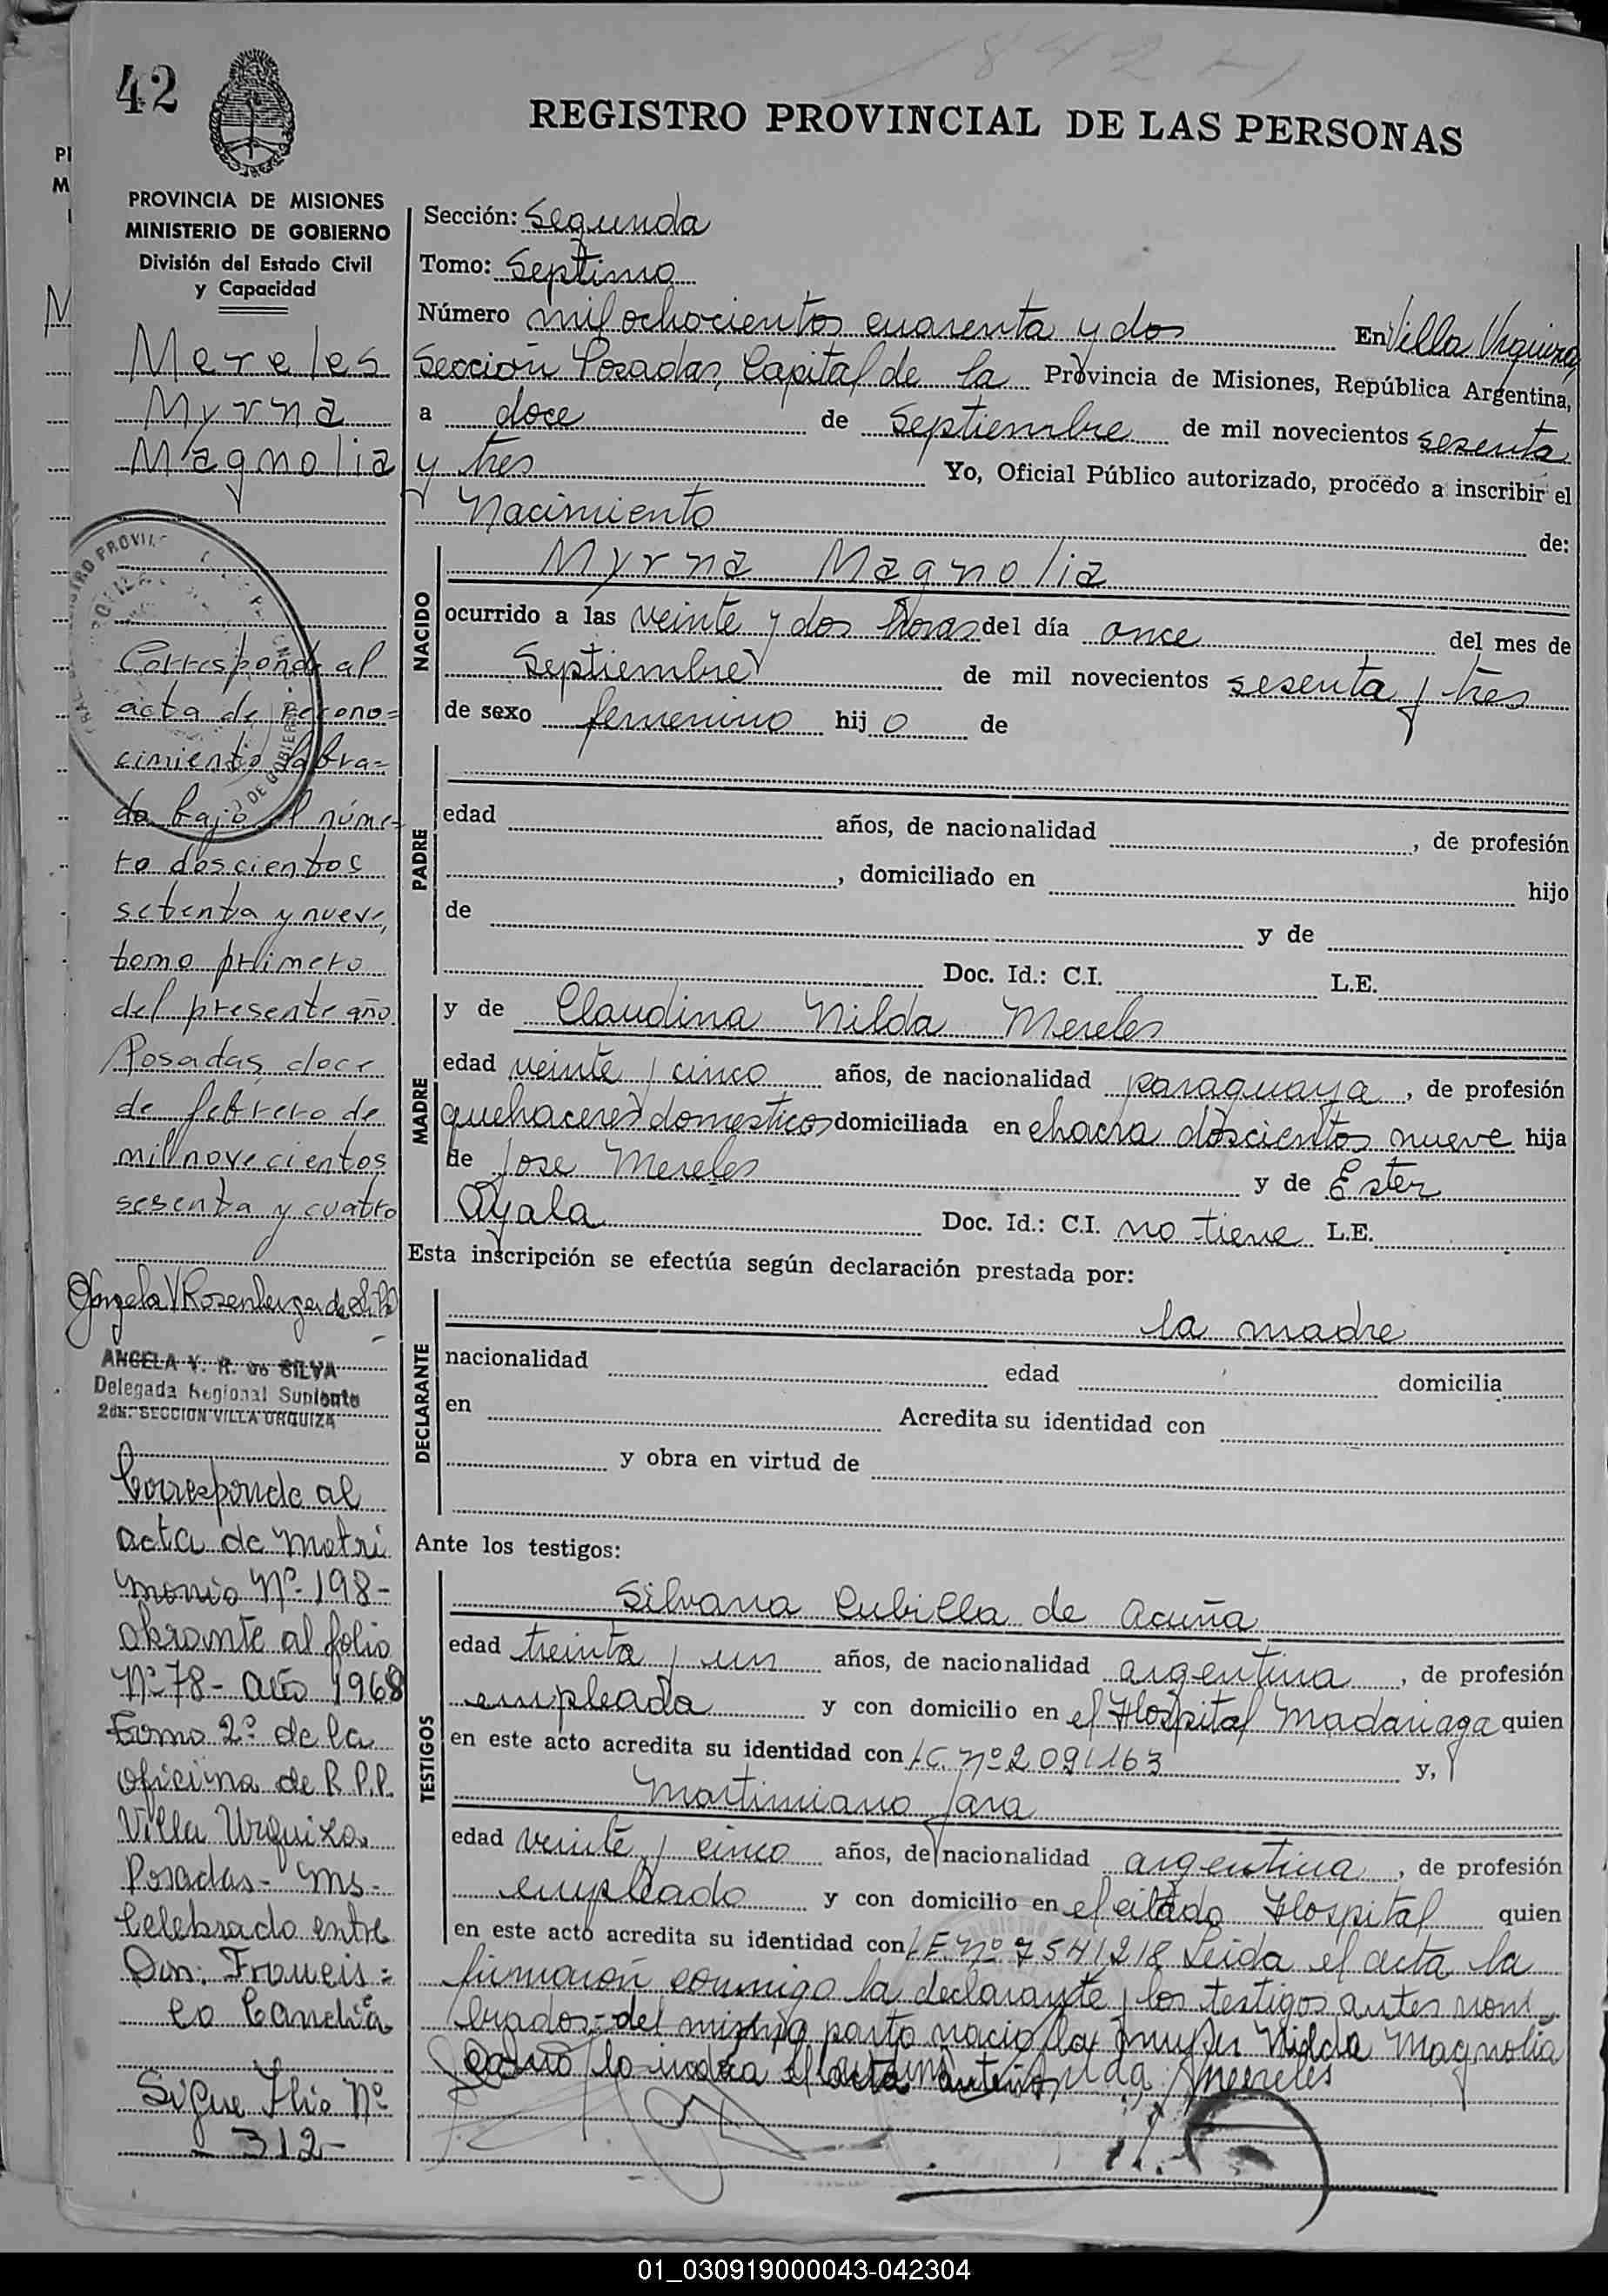 42
REGISTRO PROVINCIAL DE LAS PERSONAS
PROVINCIA DE MISIONES
MINISTERIO DE GOBIERNO
División del Estado Civil
y Capacidad
Mereles
Myrna
Magnolia
Corresponde al
acta de recono=
cimiento labra=
da bajo el núme-
ro doscientos
setenta y nueve,
tomo primero
del presente año.
Posadas, doce
de febrero de
mil novecientos
sesenta y cuatro
ANGELA V. R. de SILVA
Delegada Regional Suplente
2da. SECCION VILLA URQUIZA
Corresponde al
acta de Matri
monio Nº 198-
obrante al folio
Nº 78- año 1968
Tomo 2º de la
oficina de R.P.P.
Villa Urquiza
Posadas- Ms-
Celebrado entre
Don: Francis=
co Candia
Sigue Flio Nº
- 312-
Sección: Segunda
Tomo: Septimo
Número mil ochocientos cuarenta y dos En Villa Urquiza,
Sección Posadas, Capital de la Provincia de Misiones, República Argentina,
a doce de Septiembre de mil novecientos sesenta
y tres Yo, Oficial Público autorizado, procedo a inscribir el
Nacimiento de:
NACIDO
Myrna Magnolia
ocurrido a las veinte y dos horas del día once del mes de
Septiembre de mil novecientos sesenta y tres
de sexo femenino hijo de
PADRE
edad años, de nacionalidad , de profesión
, domiciliado en hijo
de y de
Doc. Id.: C.I. L.E.
MADRE
y de Claudina Nilda Mereles
edad veinte y cinco años, de nacionalidad paraguaya, de profesión
quehaceres domesticos domiciliada en chacra doscientos nueve hija
de Jose Mereles y de Ester
Ayala Doc. Id.: C.I. no tiene L.E.
Esta inscripción se efectúa según declaración prestada por:
DECLARANTE
la madre
nacionalidad edad domicilia
en Acredita su identidad con
y obra en virtud de
Ante los testigos:
TESTIGOS
Silvana Cubilla de Acuña
edad treinta y un años, de nacionalidad argentina, de profesión
empleada y con domicilio en el Hospital Madariaga quien
en este acto acredita su identidad con L.C. nº 2091163 y,
Martimiano Jara
edad veinte y cinco años, de nacionalidad argentina, de profesión
empleado y con domicilio en el citado Hospital quien
en este acto acredita su identidad con L.E. nº 7541218 Leida el acta la
firmaron conmigo la declarante y los testigos antes nom
brados.- del mismo parto nacio la mujer Nilda Magnolia
como lo indica el acta anterior
01_030919000043-042304